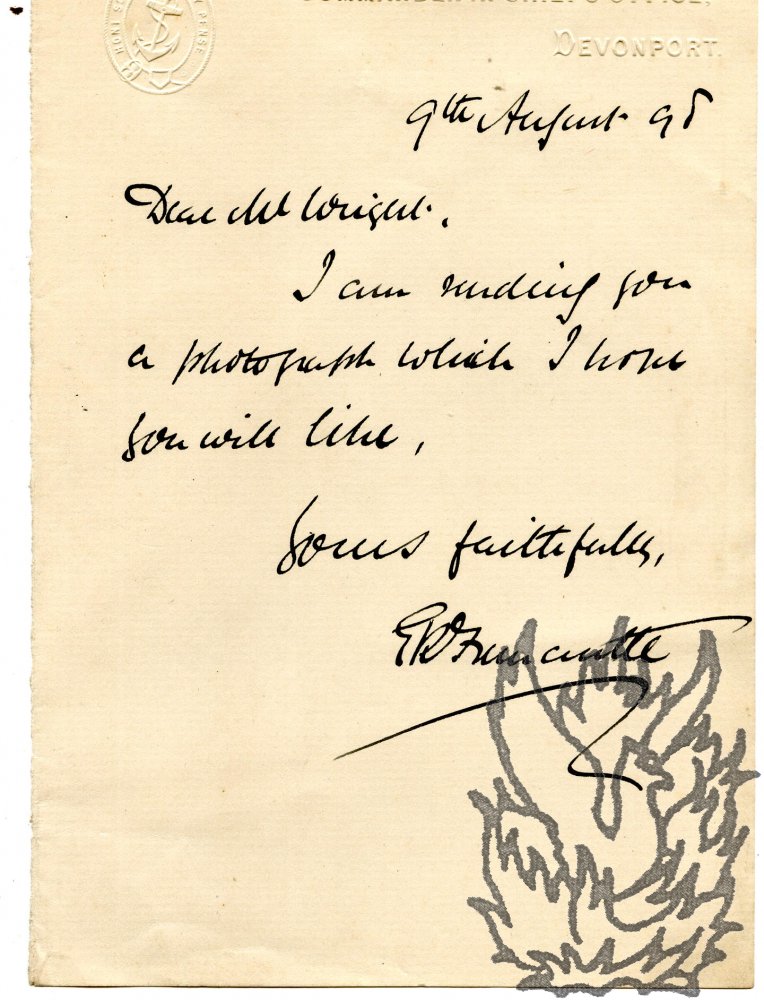 HONI S
Y PENSE
COMMANDER IN CHIEF'S OFFICE,
DEVONPORT.
9th August 98
Dear Mr Wright.
I am sending you
a photograph which I hope
you will like,
Yours faithfully,
E R Fremantle